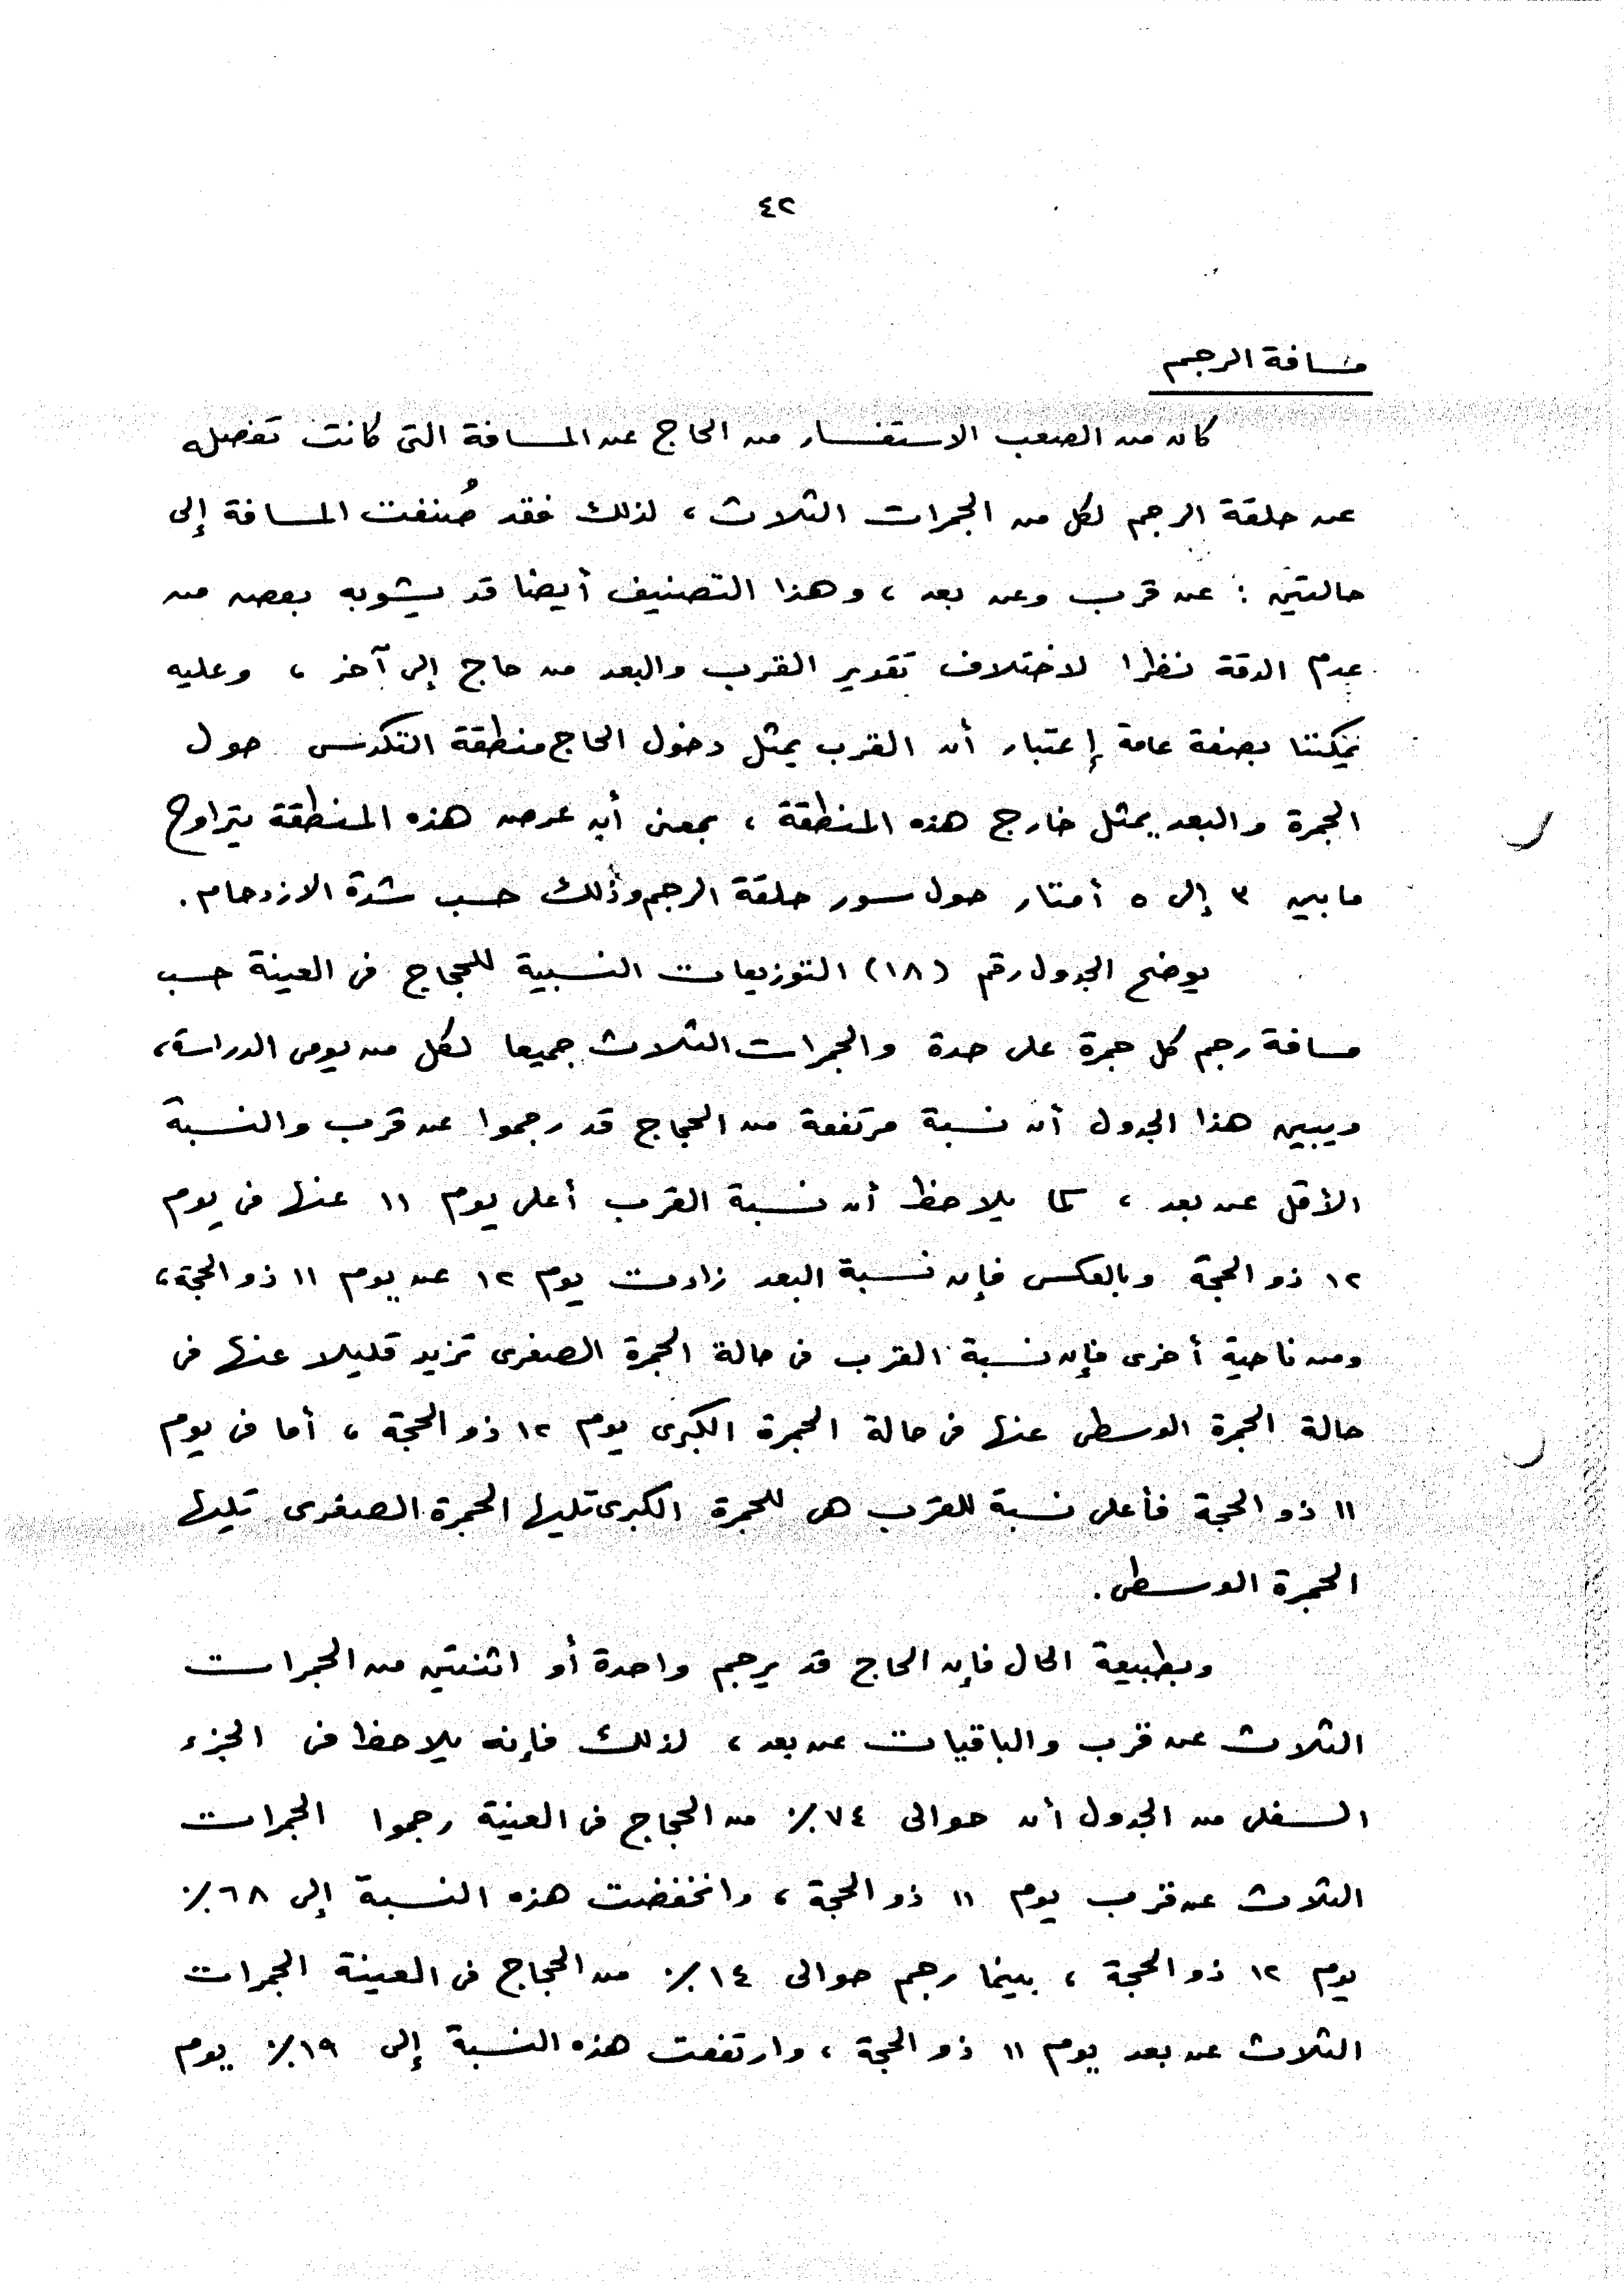 ٤٢
مسافة الرجم
كان من الصعب الاستفسار من الحاج عن المسافة التى كانت تفصله
عن حلقة الرجم لكل من الجمرات الثلاث ، لذلك فقد صُنفت المسافة إلى
حالتين : عن قرب وعن بعد ، وهذا التصنيف أيضا قد يشوبه بعض من
عدم الدقة نظرا لاختلاف تقدير القرب والبعد من حاج إلى آخر ، وعليه
يمكننا بصفة عامة إعتبار أن القرب يمثل دخول الحاج منطقة التكدس حول
الجمرة والبعد يمثل خارج هذه المنطقة ، بمعنى أن عرض هذه المنطقة يتراوح
ما بين ٣ إلى ٥ أمتار حول سور حلقة الرجم وذلك حسب شدة الازدحام .
يوضح الجدول رقم (١٨) التوزيعات النسبية للحجاج فى العينة حسب
مسافة رجم كل جمرة على حدة والجمرات الثلاث جميعا لكل من يومى الدراسة ،
ويبين هذا الجدول أن نسبة مرتفعة من الحجاج قد رجموا عن قرب والنسبة
الأقل عن بعد ، كما يلاحظ أن نسبة القرب أعلى يوم ١١ عنها فى يوم
١٢ ذو الحجة وبالعكس فإن نسبة البعد زادت يوم ١٢ عن يوم ١١ ذو الحجة ،
ومن ناحية أخرى فإن نسبة القرب فى حالة الجمرة الصغرى تزيد قليلا عنها فى
حالة الجمرة الوسطى عنها فى حالة الجمرة الكبرى يوم ١٢ ذو الحجة ، أما فى يوم
١١ ذو الحجة فأعلى نسبة للقرب هى للجمرة الكبرى تليها الجمرة الصغرى تليها
الجمرة الوسطى .
وبطبيعة الحال فإن الحاج قد يرجم واحدة أو اثنتين من الجمرات
الثلاث عن قرب والباقيات عن بعد ، لذلك فإنه يلاحظ فى الجزء
السفلى من الجدول أن حوالى ٧٤٪ من الحجاج فى العينة رجموا الجمرات
الثلاث عن قرب يوم ١١ ذو الحجة ، وانخفضت هذه النسبة إلى ٦٨٪
يوم ١٢ ذو الحجة ، بينما رجم حوالى ١٤٪ من الحجاج فى العينة الجمرات
الثلاث عن بعد يوم ١١ ذو الحجة ، وارتفعت هذه النسبة إلى ١٩٪ يوم